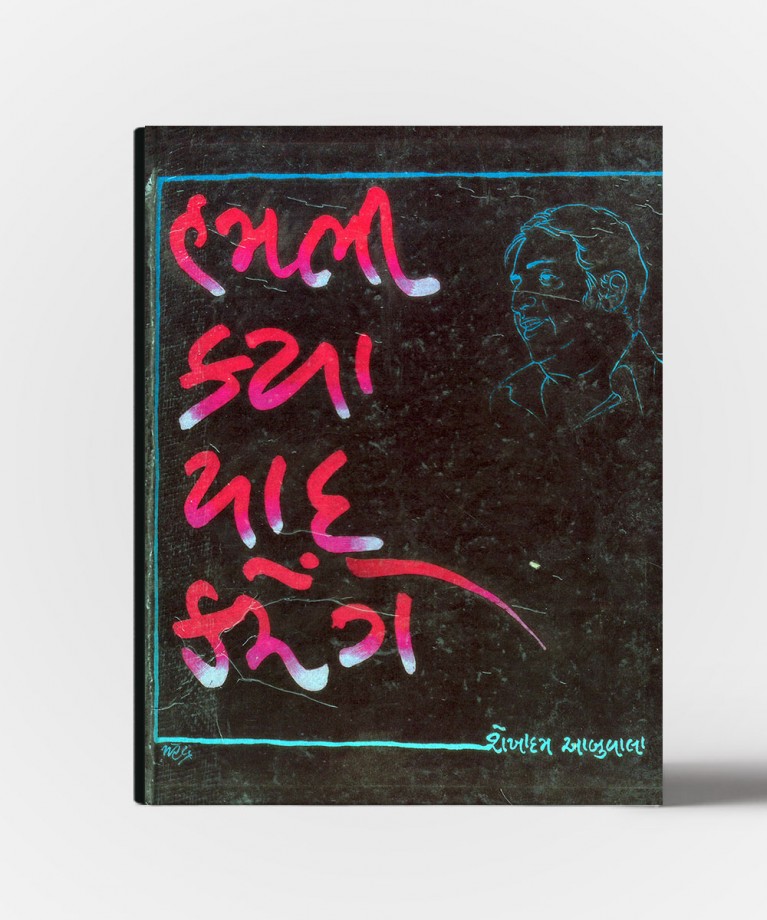 હમભી
ક્યા
યાદ
કરેંગે
શેખાદમ આબુવાલા